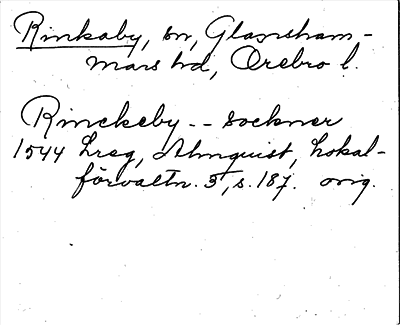 Rinkaby, sn, Glansham-
mars hd, Örebro l.
Rinckeby -- sockner
1544 Lreg, Almquist, Lokal-
förvaltn. 3, s. 187. orig.